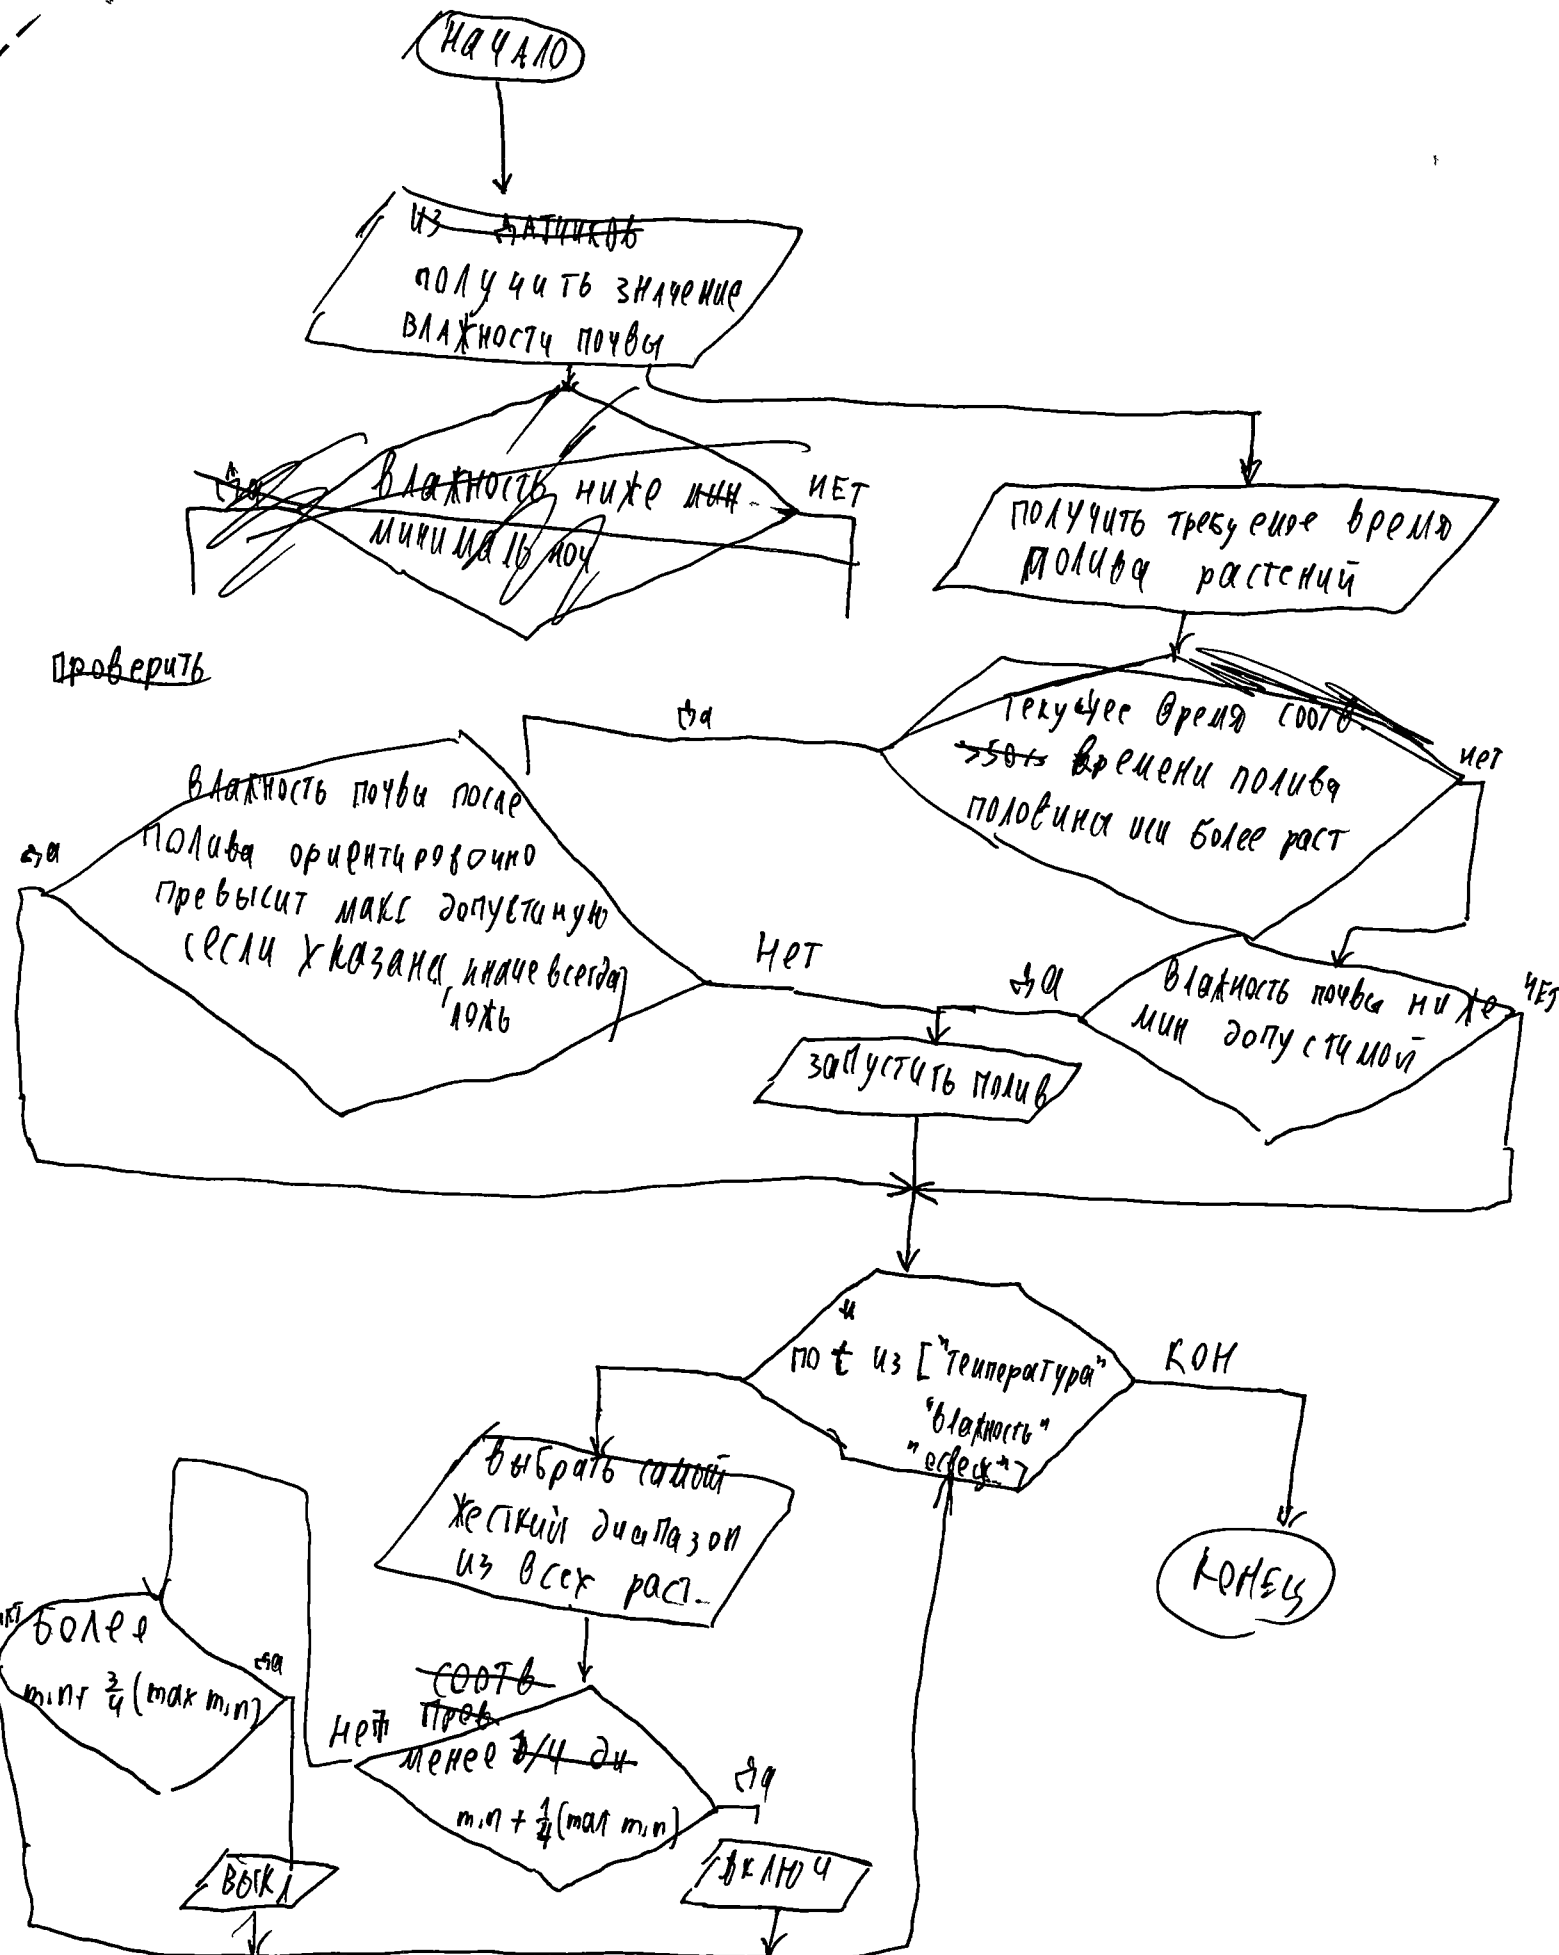 НАЧАЛО
из датчиков
получить значение
влажности почвы
да
влажность ниже мин.
минимальной
НЕТ
получить требуемое время
полива растений
проверить
да
текущее время соотв.
>50% времени полива
половины или более раст
нет
влажность почвы после
полива ориентировочно
превысит макс допустимую
(если указана, иначе всегда
ложь)
да
НЕТ
да
влажность почвы ниже
мин допустимой
НЕТ
запустить полив
по t из ["температура"
"влажность"
"освещ"]
КОН
выбрать самый
жесткий диапазон
из всех раст.
КОНЕЦ
более
min + 3/4 (max min)
да
соотв
прев
нет
менее 1/4 ди
min + 1/4 (max min)
да
выкл
включ